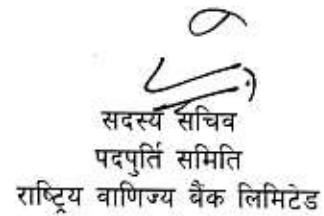 सदस्य सचिव
पदपुर्ति समिति
राष्ट्रिय वाणिज्य बैंक लिमिटेड